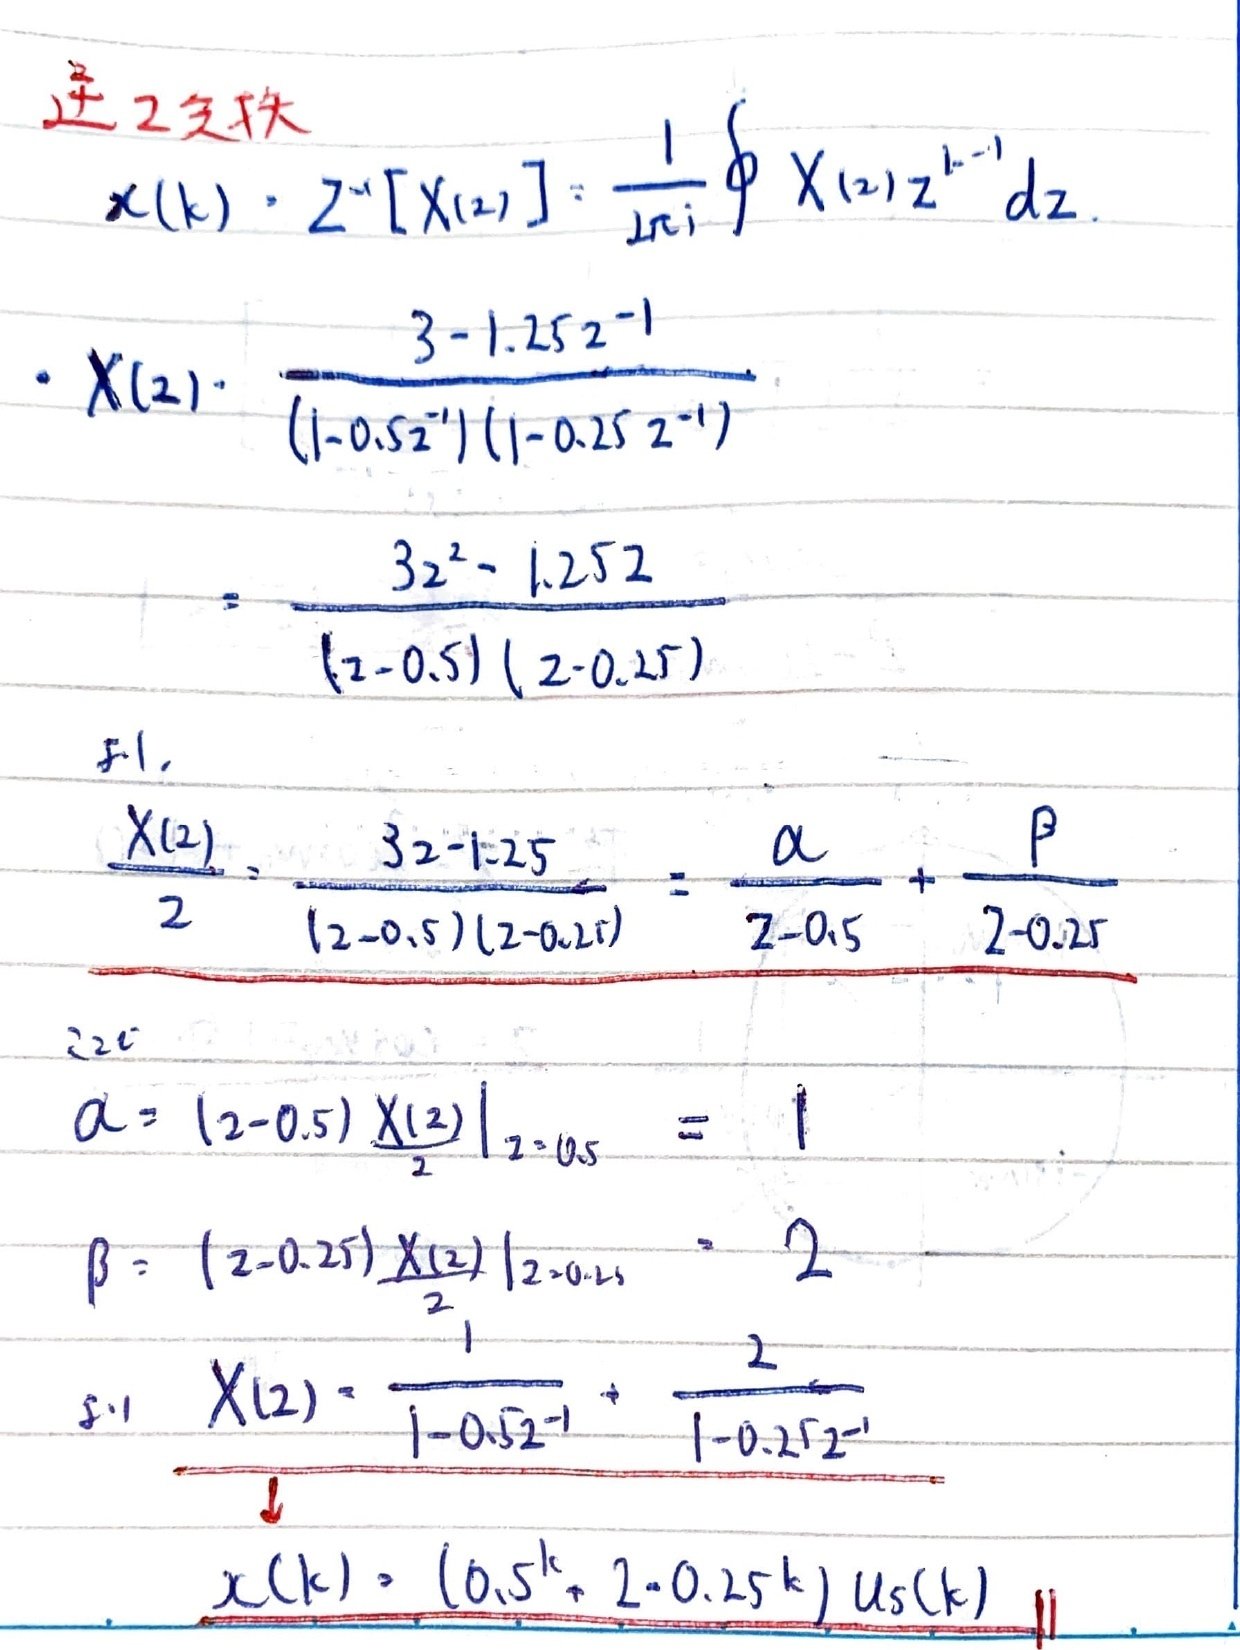 逆z変換
x(k) = Z⁻¹[X(z)] = 1/2πi ∮ X(z) z^{k-1} dz.
・ X(z) = (3 - 1.25z⁻¹) / ((1-0.5z⁻¹)(1-0.25z⁻¹))
= (3z² - 1.25z) / ((z-0.5)(z-0.25))
より,
X(z)/z = (3z-1.25) / ((z-0.5)(z-0.25)) = α/(z-0.5) + β/(z-0.25)
ここで
α = (z-0.5) X(z)/z |z=0.5 = 1
β = (z-0.25) X(z)/z |z=0.25 = 2
より X(z) = 1/(1-0.5z⁻¹) + 2/(1-0.25z⁻¹)
↓
x(k) = (0.5^k + 2・0.25^k) us(k)